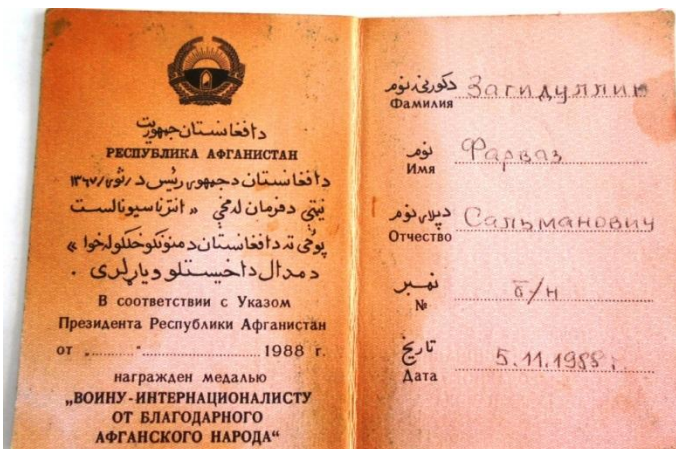 دافغانستان جمهوریت
РЕСПУБЛИКА АФГАНИСТАН
دافغانستان د جمهور رئیس د / ۱۳۶۷
نیټې د فرمان له مخې « انترناسیونالست
پوځي ته دافغانستان د منونکو خلکو له خوا »
د مدال د اخیستلو ویاړ لري .
В соответствии с Указом
Президента Республики Афганистан
от „ “ 1988 г.
награжден медалью
„ВОИНУ-ИНТЕРНАЦИОНАЛИСТУ
ОТ БЛАГОДАРНОГО
АФГАНСКОГО НАРОДА“
دکورنۍ نوم Загидуллин
Фамилия
نوم Фарваз
Имя
دپلار نوم Сальманович
Отчество
نمبر б/н
№
تاریخ 5.11.1988г.
Дата